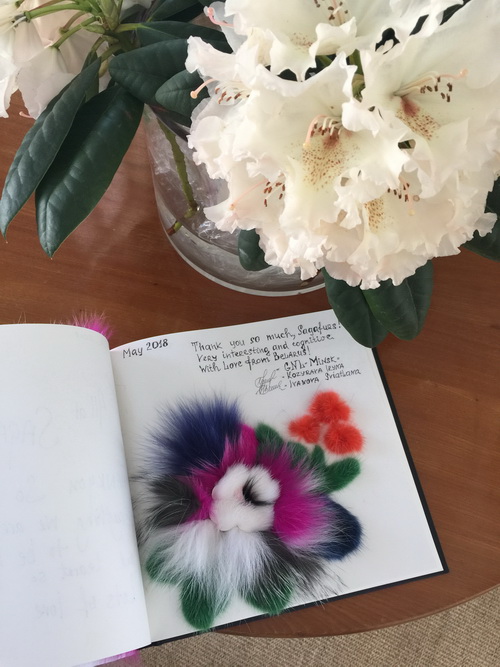 May 2018
Thank you so much, Sagafurs!
Very interesting and cognitive.
With love from BELARUS!
GNL-MINSK-
- KOZYRAVA IRYNA
- IVANOVA Sviatlana